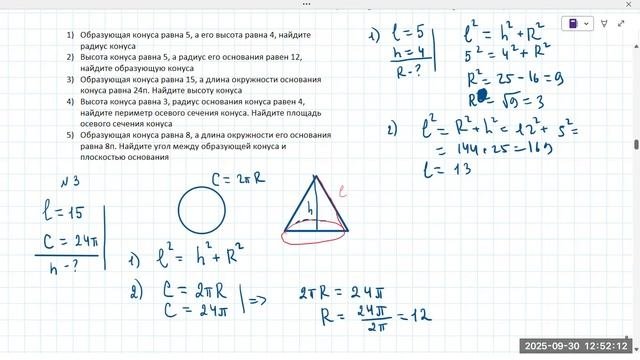 1) Образующая конуса равна 5, а его высота равна 4, найдите
радиус конуса
2) Высота конуса равна 5, а радиус его основания равен 12,
найдите образующую конуса
3) Образующая конуса равна 15, а длина окружности основания
конуса равна 24π. Найдите высоту конуса
4) Высота конуса равна 3, радиус основания конуса равен 4,
найдите периметр осевого сечения конуса. Найдите площадь
осевого сечения конуса
5) Образующая конуса равна 8, а длина окружности его основания
равна 8π. Найдите угол между образующей конуса и
плоскостью основания
1) l = 5
h = 4
R - ?
l² = h² + R²
5² = 4² + R²
R² = 25 - 16 = 9
R = √9 = 3
2) l² = R² + h² = 12² + 5² =
= 144 + 25 = 169
l = 13
N 3
l = 15
C = 24π
h - ?
C = 2πR
h
l
1) l² = h² + R²
2) C = 2πR
C = 24π
=>
2πR = 24π
R = 24π/2π = 12
2025-09-30 12:52:12